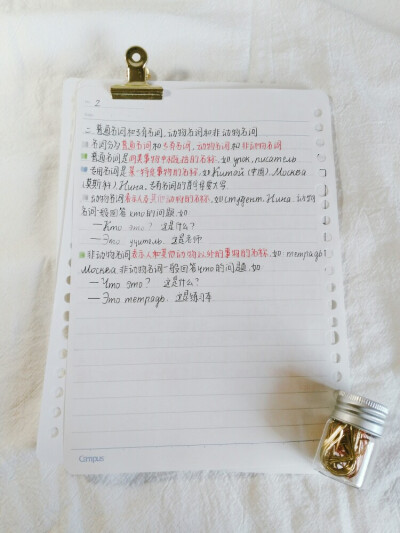 2
二、普通名词和专有名词、动物名词和非动物名词
名词分为普通名词和专有名词、动物名词和非动物名词
普通名词是同类事物中概括的名称. 如 урок, писатель
专有名词是某一特定事物的名称. 如 Китай (中国) Москва
(莫斯科) Нина. 专有名词的首字母要大写
动物名词表示人及其它动物的名称. 如 студент. Нина. 动物
名词一般回答 кто 的问题. 如
— Кто это? 这是什么?
— Это учитель. 这是老师
非动物名词表示人和其他动物以外的事物的名称. 如 тетрадь
Москва. 非动物名词一般回答 что 的问题. 如
— Что это? 这是什么?
— Это тетрадь. 这是练习本
Campus